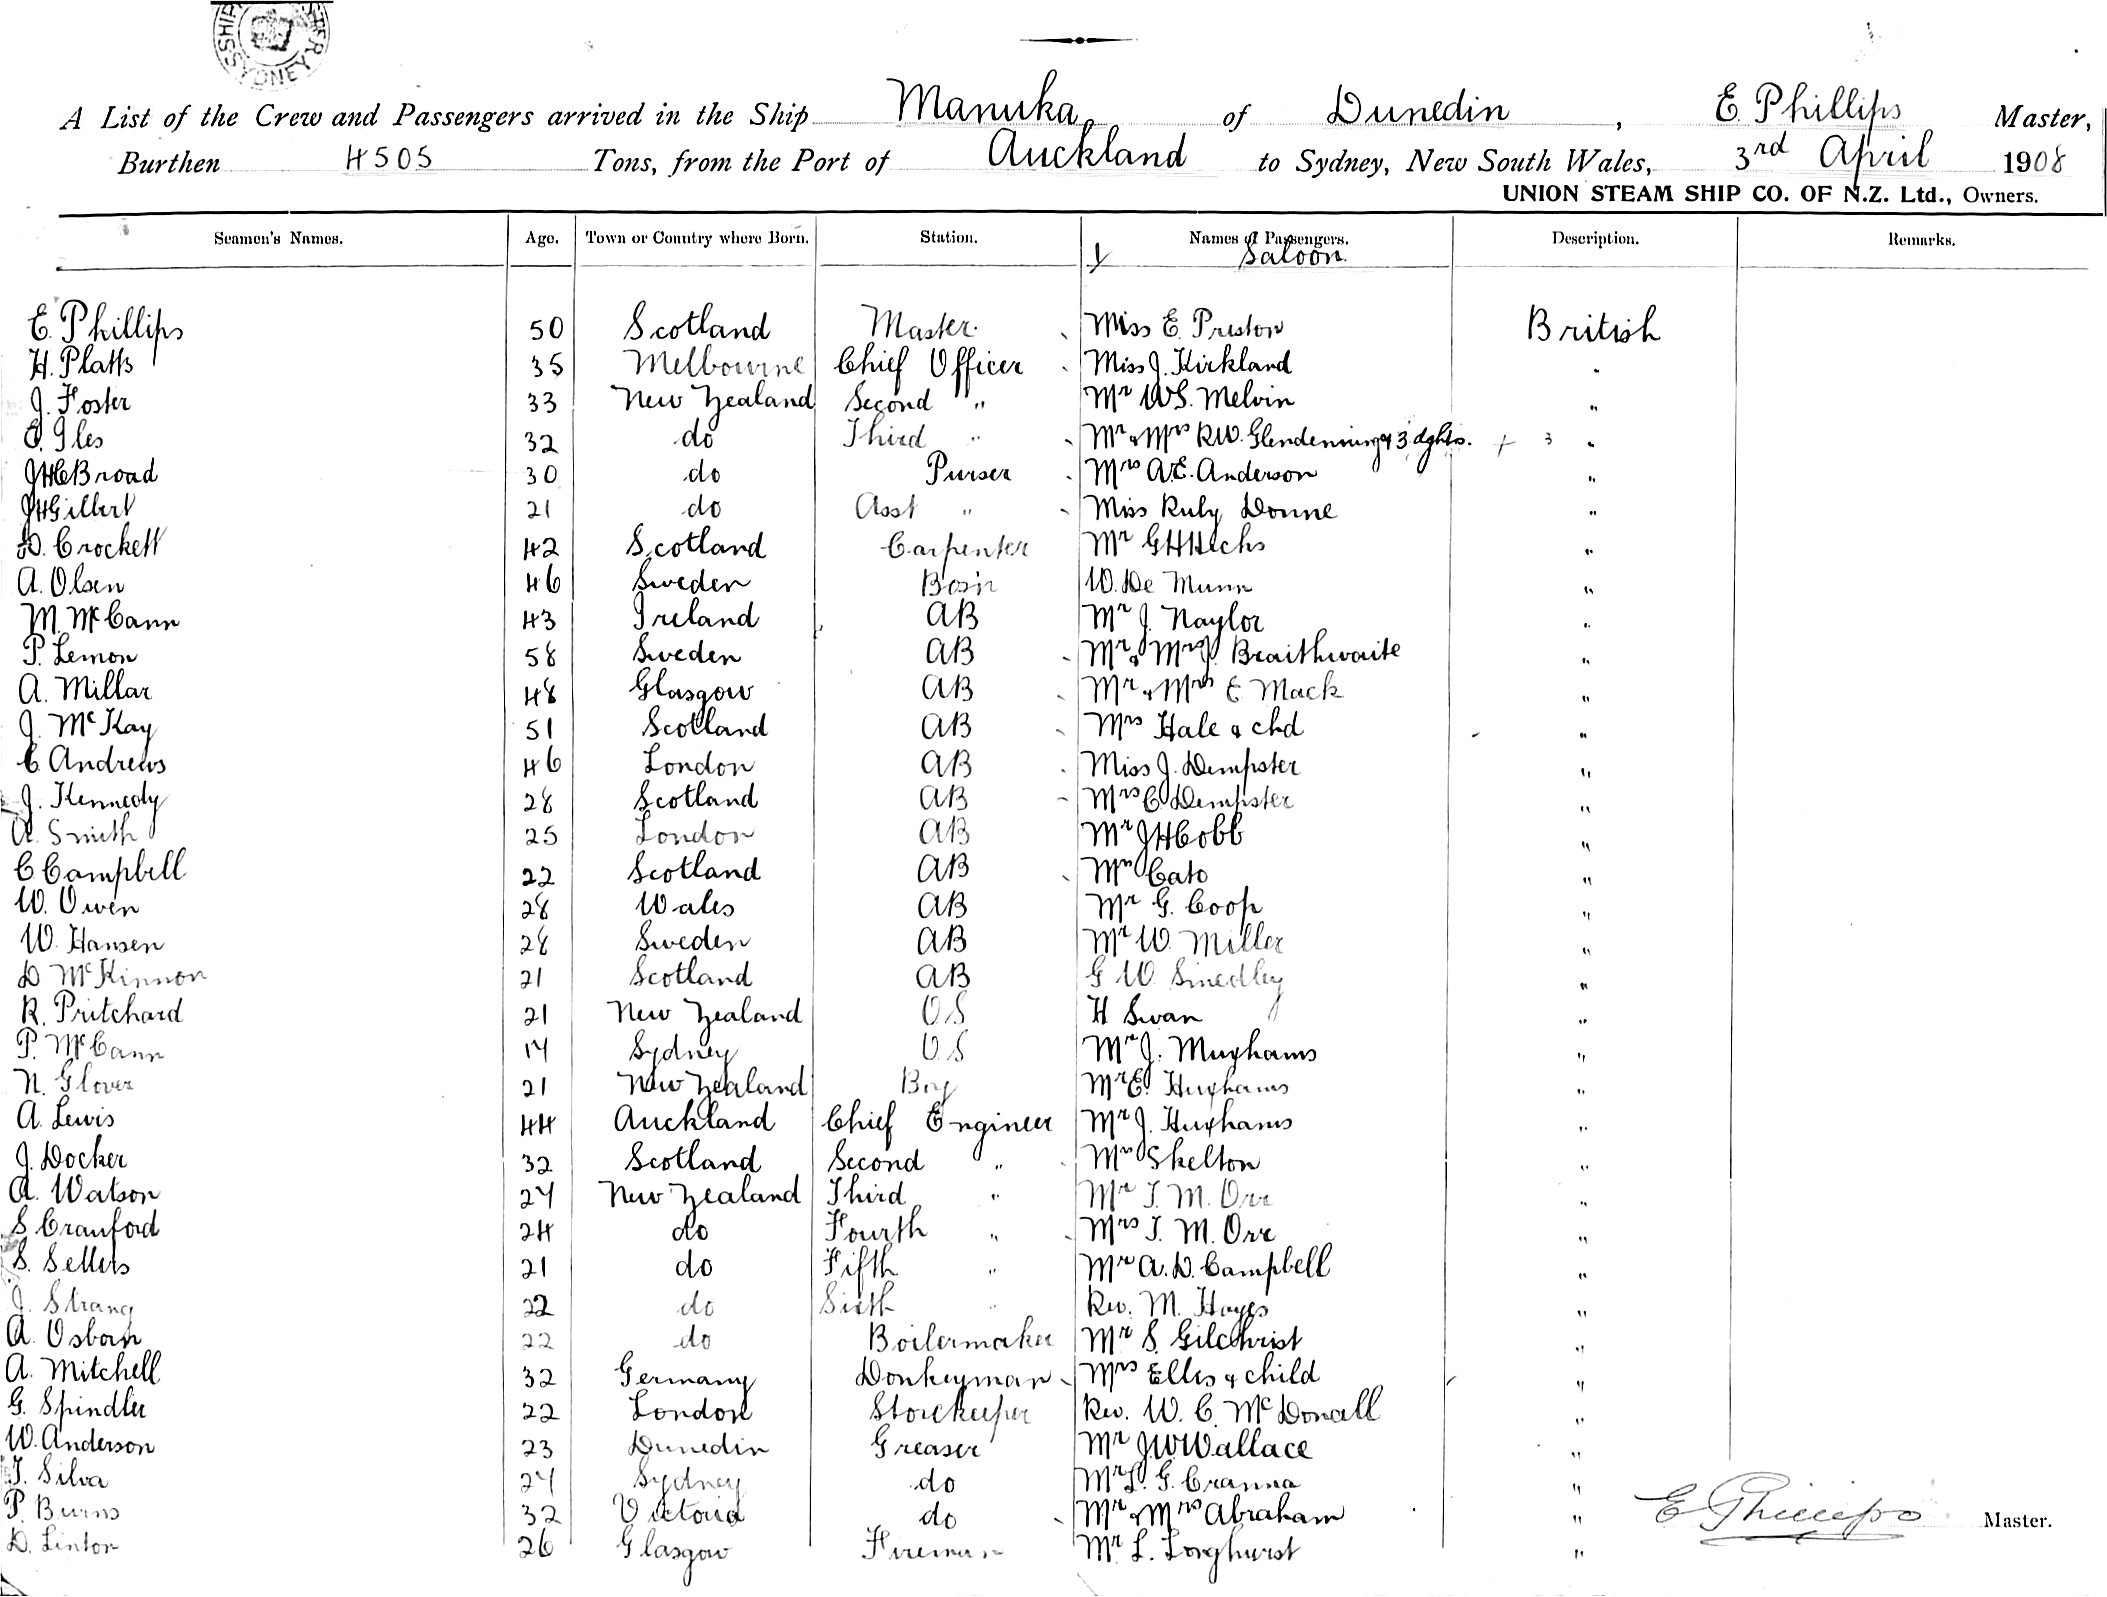 SYDNEY
A List of the Crew and Passengers arrived in the Ship Manuka of Dunedin, E. Phillips Master,
Burthen 4505 Tons, from the Port of Auckland to Sydney, New South Wales, 3rd April 1908
UNION STEAM SHIP CO. OF N.Z. Ltd., Owners.
Seamen's Names. Age. Town or Country where Born. Station. Names of Passengers. Description. Remarks.
Saloon.
E. Phillips 50 Scotland Master. Miss E. Preston British
H. Platts 35 Melbourne Chief Officer Miss J. Kirkland "
J. Foster 33 New Zealand Second " Mr W.S. Melvin "
E. Iles 32 do Third " Mr & Mrs R.W. Glendenning & 3 dghts. + 3 "
JHC Broad 30 do Purser Mrs A.E. Anderson "
JH Gilbert 21 do Asst " Miss Ruby Donne "
D. Crockett 42 Scotland Carpenter Mr GH "
A. Olsen 46 Sweden Bos'n W. De Munn "
M. McCann 43 Ireland AB Mr J. Naylor "
P. Lemon 58 Sweden AB Mr & Mrs J. Braithwaite "
A. Millar 48 Glasgow AB Mr & Mrs E Mack "
J. McKay 51 Scotland AB Mrs Hale & chd "
C Andrews 46 London AB Miss J. Dempster "
J. Kennedy 28 Scotland AB Mrs C Dempster "
A. Smith 25 London AB Mr JH Cobb "
C Campbell 22 Scotland AB Mrs Cato "
W. Owen 28 Wales AB Mr G. Coop "
W. Hansen 28 Sweden AB Mr W. Miller "
D McKinnon 21 Scotland AB G W. Smedley "
R. Pritchard 21 New Zealand O.S H Swan "
P. McCann 17 Sydney O.S Mr J. "
N. Glover 21 New Zealand Boy Mr E. "
A. Lewis 44 Auckland Chief Engineer Mr J. "
J. Docker 32 Scotland Second " Mrs Skelton "
A. Watson 27 New Zealand Third " Mr T. M. Orr "
S Cranford 24 do Fourth " Mrs T. M. Orr "
S. Sellers 21 do Fifth " Mr A. D. Campbell "
J. Strang 22 do Sixth " Rev. M. Hayes "
A. Osborn 22 do Boilermaker Mr S. Gilchrist "
A. Mitchell 32 Germany Donkeyman Mrs Elles & child "
G. Spindler 22 London Storekeeper Rev. W. C. "
W. Anderson 23 Dunedin Greaser Mr J.W. Wallace "
T. Silva 27 Sydney do Mr L. G. Cranna "
P. Burns 32 Victoria do Mr & Mrs Abraham "
D. Linton 26 Glasgow Fireman Mr L. Longhurst "
E Phillips Master.